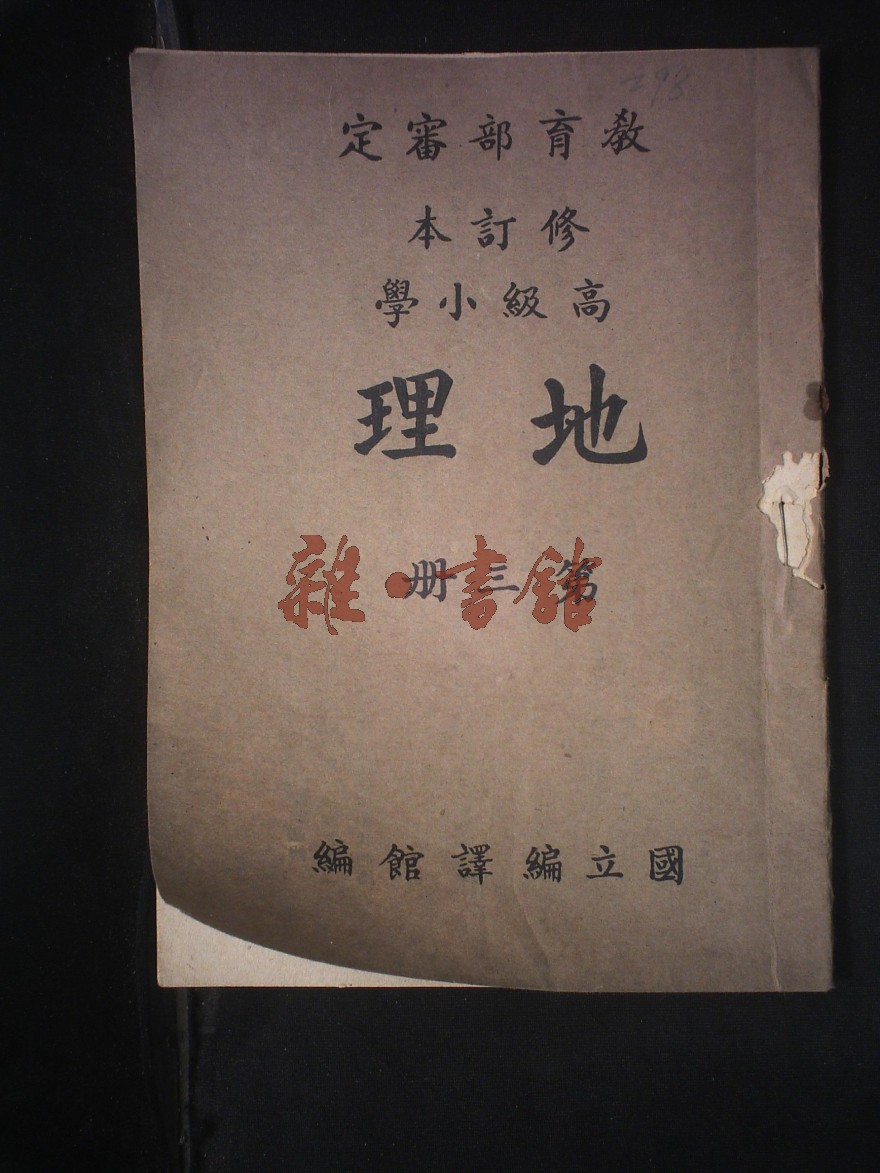 教育部審定
修訂本
高級小學
地理
第三册
雜·書館
國立編譯館編